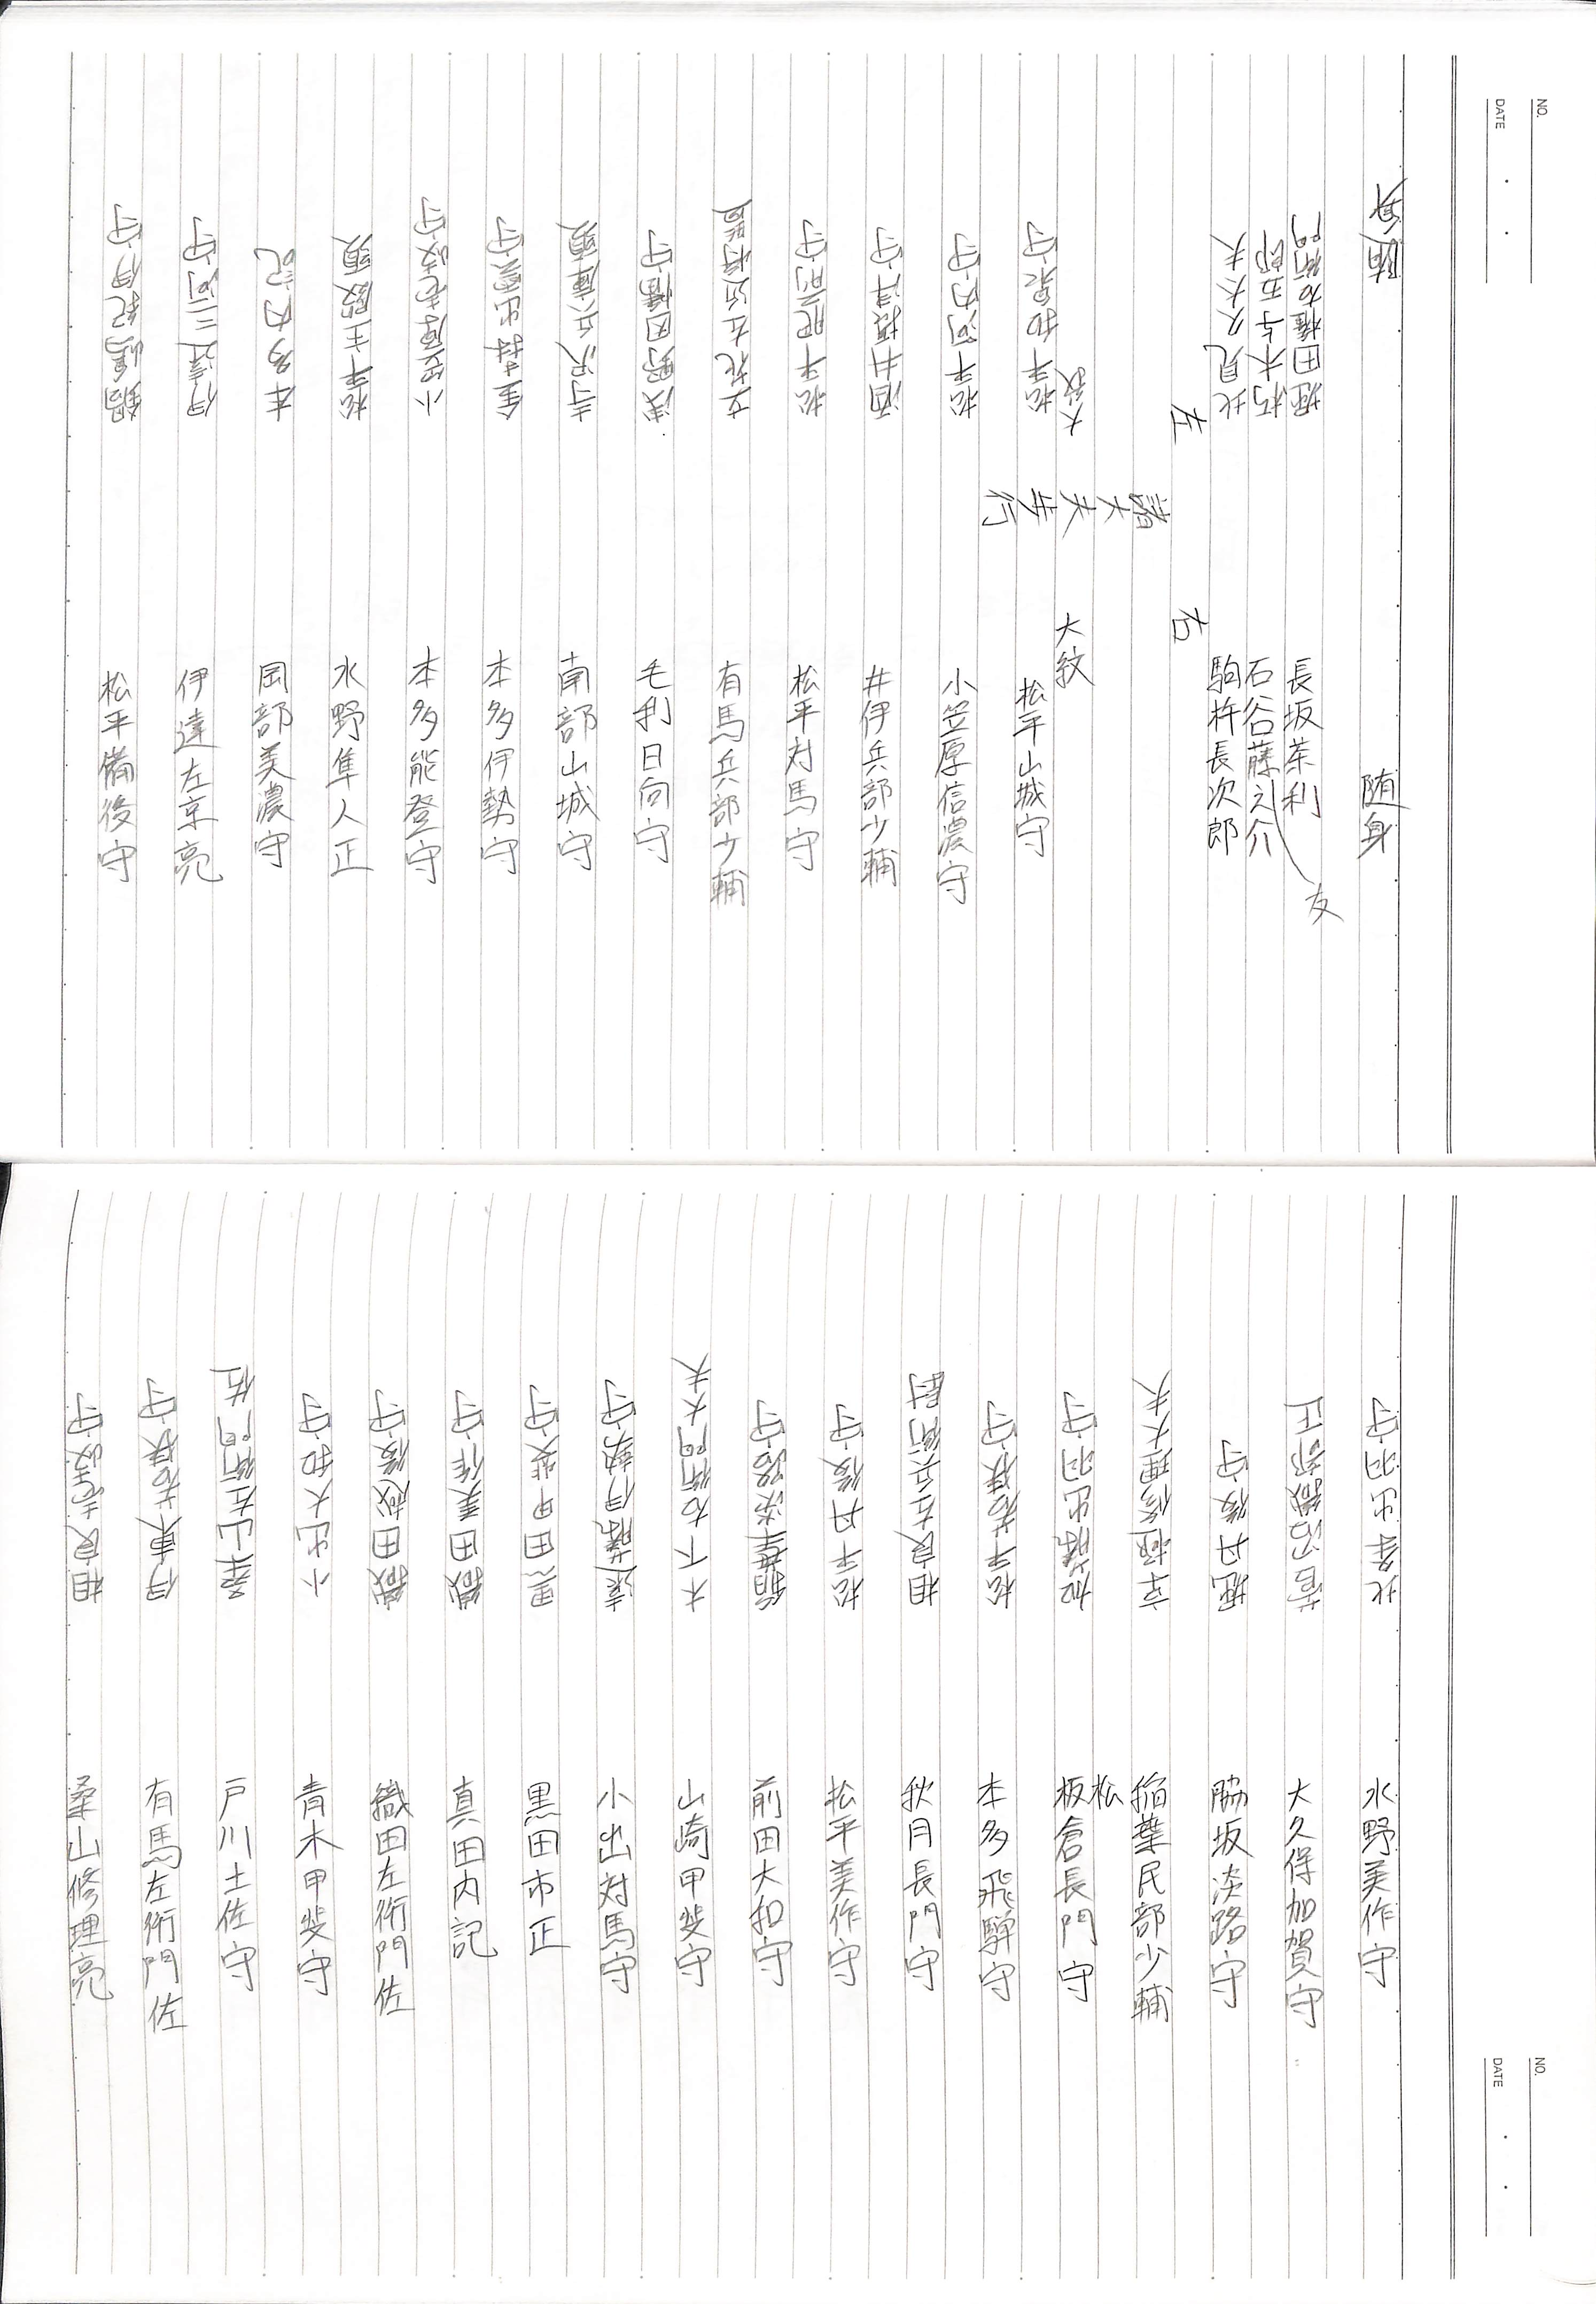 随身
随身
堀田権右衛門
長坂茶利
朽木与五郎
石谷藤之介
友
北見久大夫
駒杵長次郎
左
右
諸大夫歩行
大紋
大紋
松平和泉守
松平山城守
松平河内守
小笠原信濃守
酒井摂津守
井伊兵部少輔
松平肥前守
松平対馬守
立花左近将監
有馬兵部少輔
浅野因幡守
毛利日向守
寺沢兵庫頭
南部山城守
金森出雲守
本多伊勢守
小笠原壱岐守
本多能登守
松平主殿頭
水野隼人正
本多内記
岡部美濃守
伊達三河守
伊達左京亮
鍋島紀伊守
松平備後守
NO.
DATE
北条出羽守
水野美作守
菅沼織部正
大久保加賀守
堀丹後守
脇坂淡路守
京極修理大夫
稲葉民部少輔
松
加藤出羽守
板倉長門守
松平若狭守
本多飛騨守
相良左兵衛尉
秋月長門守
松平丹後守
松平美作守
稲葉淡路守
前田大和守
木下右衛門大夫
山崎甲斐守
遠藤伊勢守
小出対馬守
黒田甲斐守
黒田市正
織田美作守
真田内記
織田越後守
織田左衛門佐
小出大和守
青木甲斐守
桑山左衛門佐
戸川土佐守
伊東若狭守
有馬左衛門佐
相良壱岐守
桑山修理亮
NO.
DATE